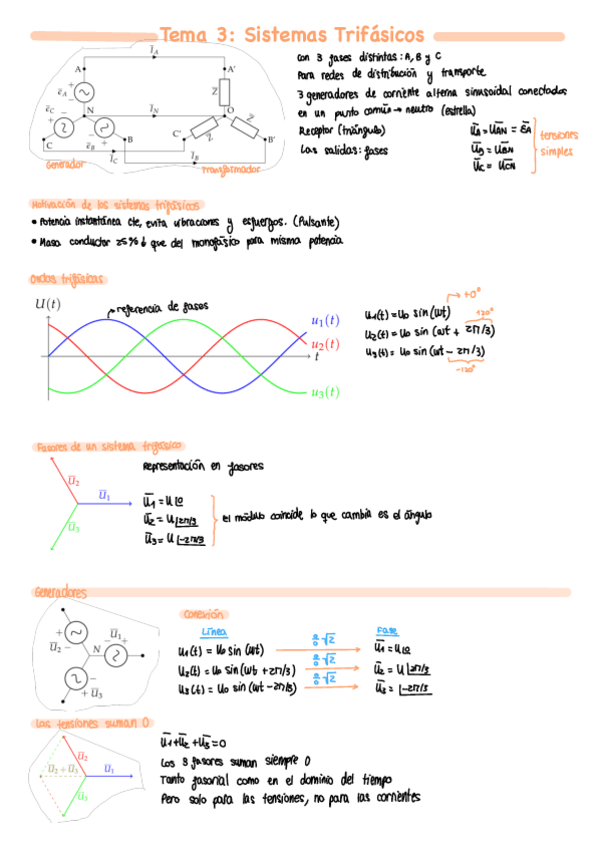 Tema 3: Sistemas Trifásicos
con 3 fases distintas: A, B y C
Para redes de distribución y transporte
3 generadores de corriente alterna sinusoidal conectados
en un punto común → neutro (estrella)
Receptor (triángulo)
Las salidas: fases
U̅A = U̅AN = E̅A
U̅B = U̅BN
U̅C = U̅CN
tensiones
simples
I̅A
A
A'
e̅A
Z
e̅C
N
I̅N
O
e̅B
C
B
C'
Z
Z
B'
I̅C
I̅B
Generador
Transformador
Motivación de los sistemas trifásicos
• Potencia instantánea cte, evita vibraciones y esfuerzos. (Pulsante)
• Masa conductor 25% ↓ que del monofásico para misma potencia
Ondas trifásicas
U(t)
referencia de fases
u1(t)
u2(t)
t
u3(t)
→ +0°
u1(t) = U0 sin(wt)
+120°
u2(t) = U0 sin (wt + 2π/3)
u3(t) = U0 sin (wt - 2π/3)
-120°
Fasores de un sistema trifásico
U̅2
U̅1
U̅3
Representación en fasores
U̅1 = U|0
U̅2 = U|2π/3
U̅3 = U|-2π/3
El módulo coincide, lo que cambia es el ángulo
Generadores
+
U̅2 −
N
− U̅1 +
−
+ U̅3
Conexión
Línea
Fase
u1(t) = U0 sin (wt)
√2
U̅1 = U|0
u2(t) = U0 sin (wt + 2π/3)
√2
U̅2 = U|2π/3
u3(t) = U0 sin (wt - 2π/3)
√2
U̅3 = |-2π/3
Las tensiones suman 0
U̅2
U̅2 + U̅3
U̅1
U̅3
U̅1+U̅2+U̅3=0
Los 3 fasores suman siempre 0
Tanto fasorial como en el dominio del tiempo
Pero solo para las tensiones, no para las corrientes